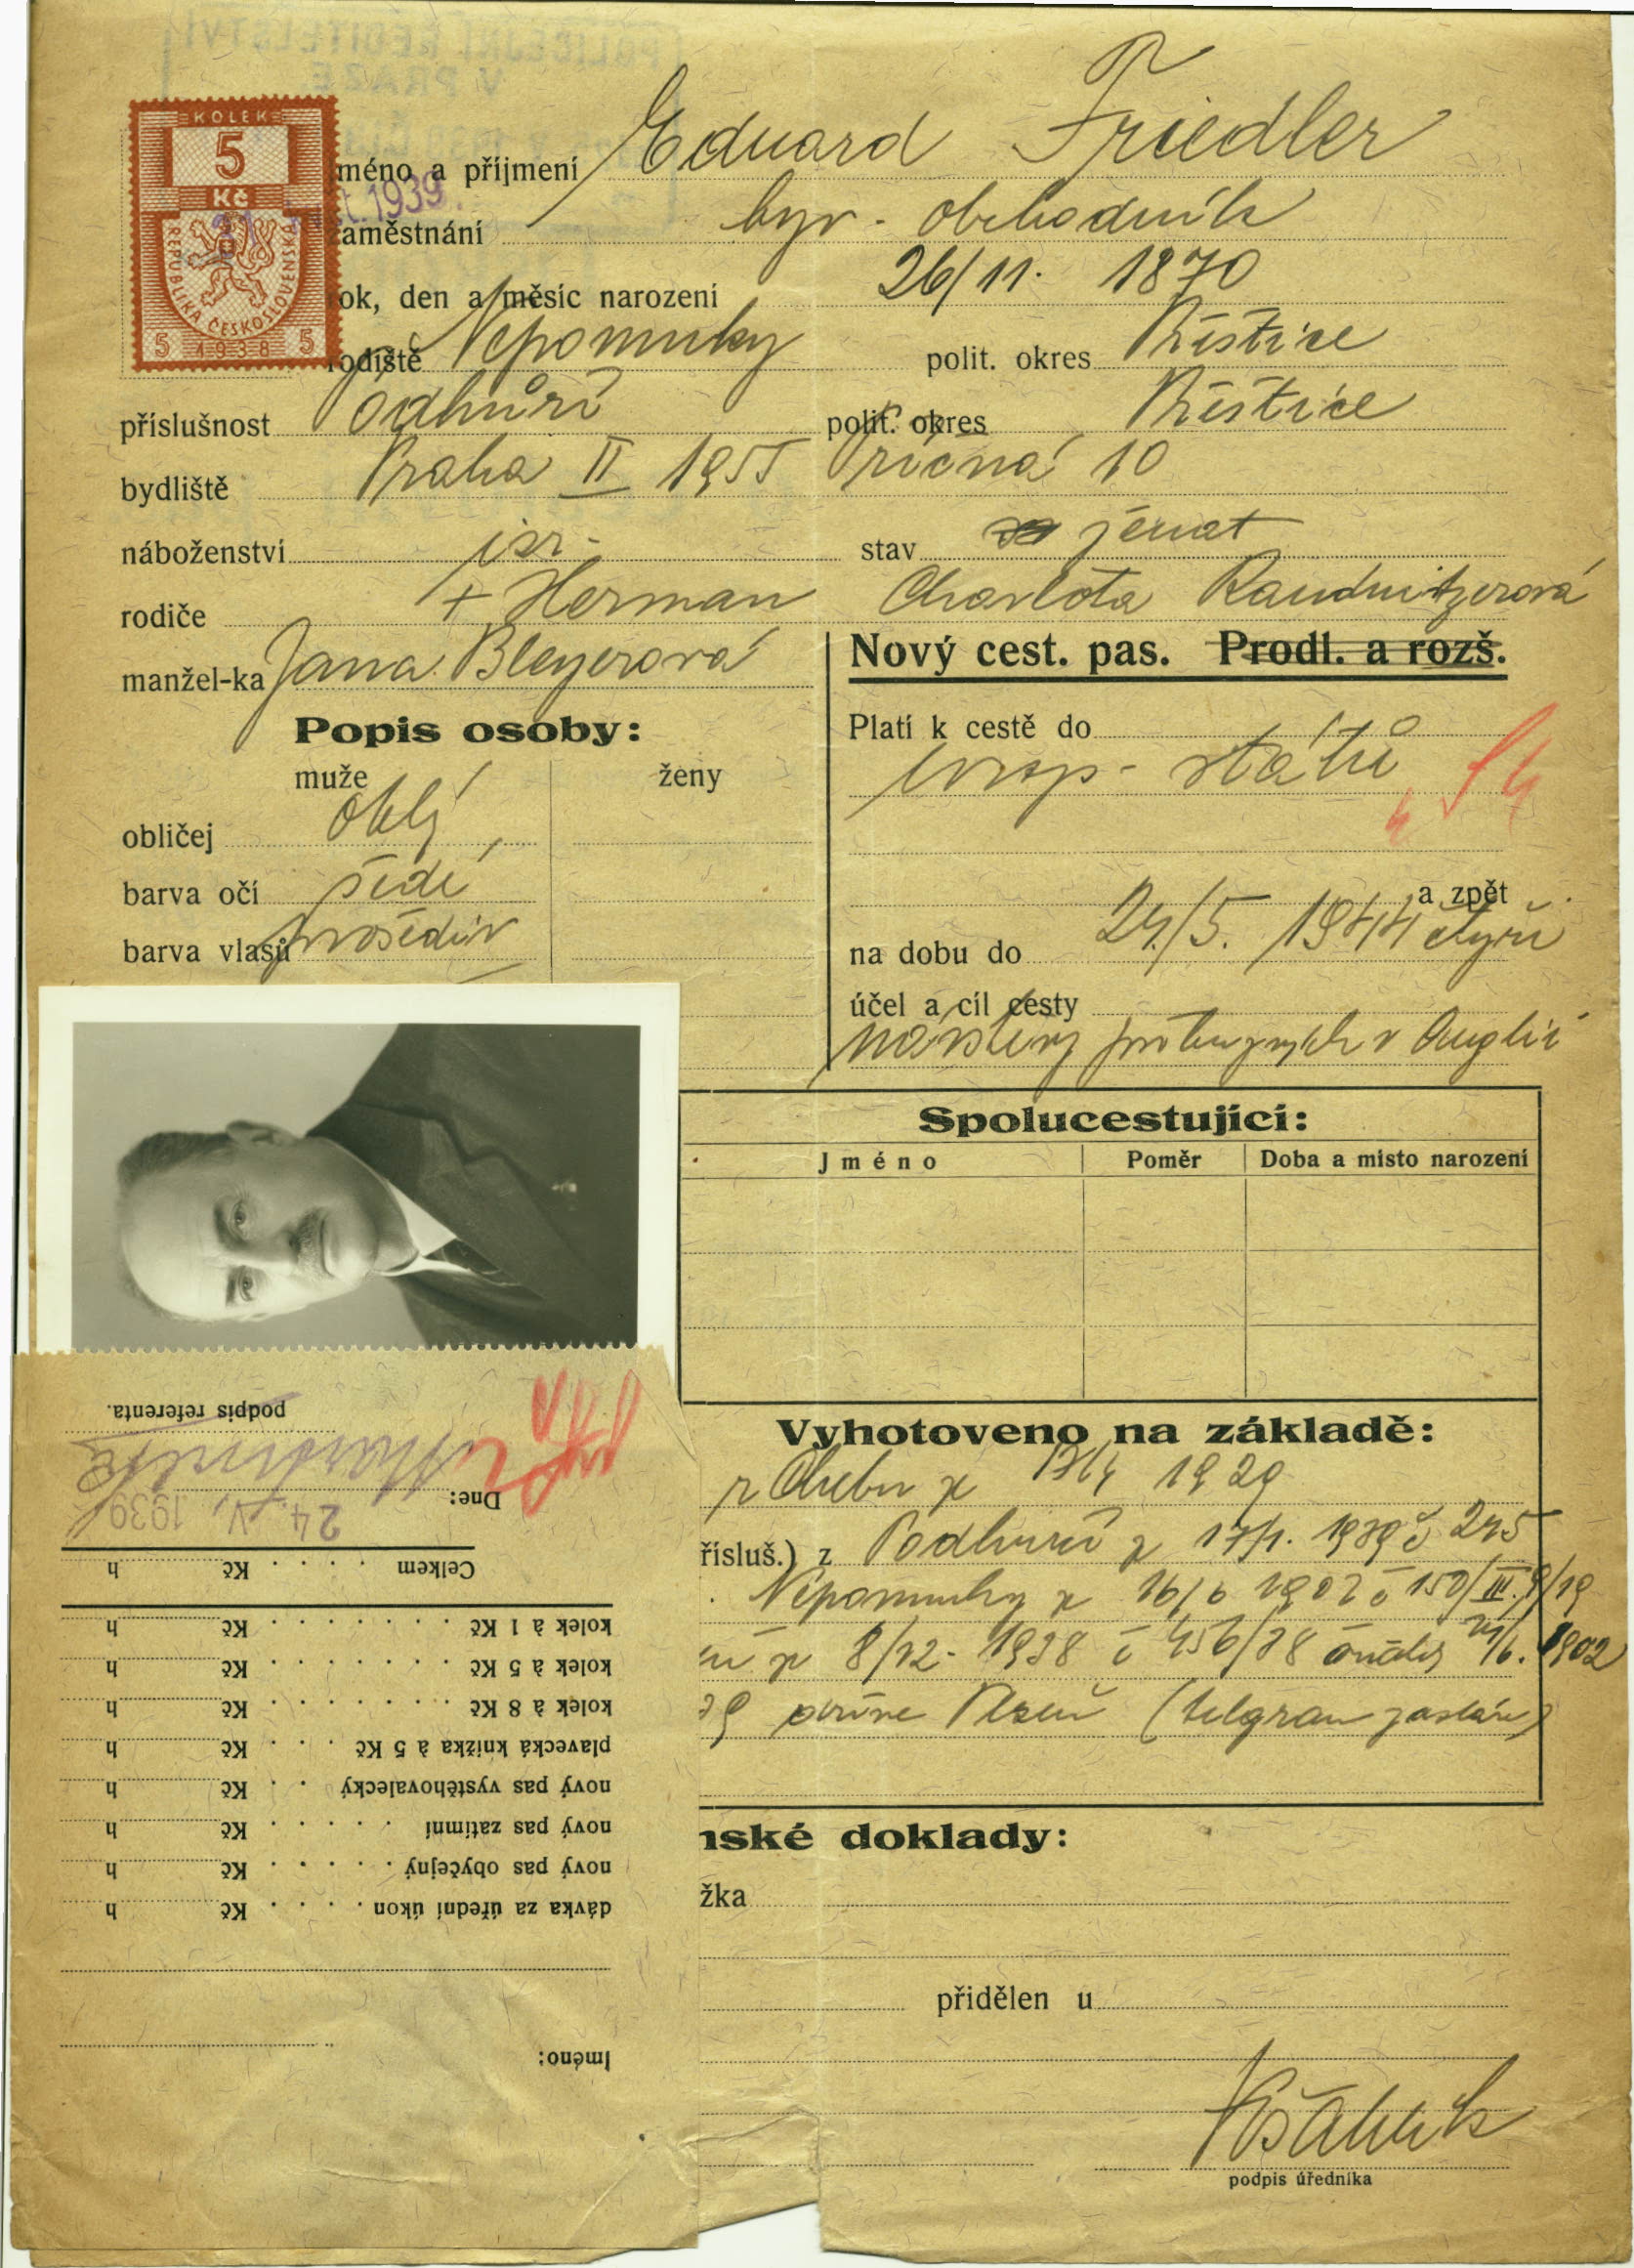 KOLEK
5
Kč
REPUBLIKA ČESKOSLOVENSKÁ
5 1938 5
POLICEJNÍ ŘEDITELSTVÍ
V PRAZE
1939
méno a příjmení Eduard Friedler
zaměstnání byv. obchodník
ok, den a měsíc narození 26/11. 1870
rodiště Nepomuky polit. okres Přeštice
příslušnost Podhůří polit. okres Přeštice
bydliště Praha II 1955 Říčná 10
náboženství isr. stav ženat
rodiče + Herman Charlota Raudnitzerová
manžel-ka Jana Bleyerová
Nový cest. pas. Prodl. a rozš.
Popis osoby:
muže ženy
obličej oblý
barva očí šedé
barva vlasů prošediv
Platí k cestě do
evrop. států
a zpět
na dobu do 24./5. 1944 čtyři
účel a cíl cesty
návštěvy příbuzných v Anglii
Spolucestující:
Jméno Poměr Doba a místo narození
Vyhotoveno na základě:
z Chebu z 1929
řísluš.) z Podhůří z 17/1. 1939 č 245
Nepomuky z 16/6 1902 č 150/III.
z 8/12. 1938 č 456/38 /6. 1902
39 Plzeň (telgram zaslán)
nské doklady:
žka
přidělen u
podpis úředníka
podpis referenta.
Dne: 24. V. 1939
Celkem . . . . Kč h
kolek à 1 Kč . . . . . . . Kč h
kolek à 5 Kč . . . . . . . Kč h
kolek à 8 Kč . . . . . . . Kč h
plavecká knížka à 5 Kč . . . Kč h
nový pas vystěhovalecký . . Kč h
nový pas zatímní . . . . . Kč h
nový pas obyčejný . . . . . Kč h
dávka za úřední úkon . . . . Kč h
Jméno: